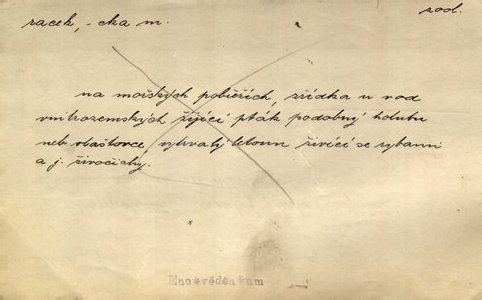 racek, -cka m.
zool.
na mořských pobřežích, zřídka u vod
vnitrozemských žijící pták podobný holubu
neb vlaštovce, vytrvalý letoun živící se rybami
a j. živočichy.
Enc*věd*a*um